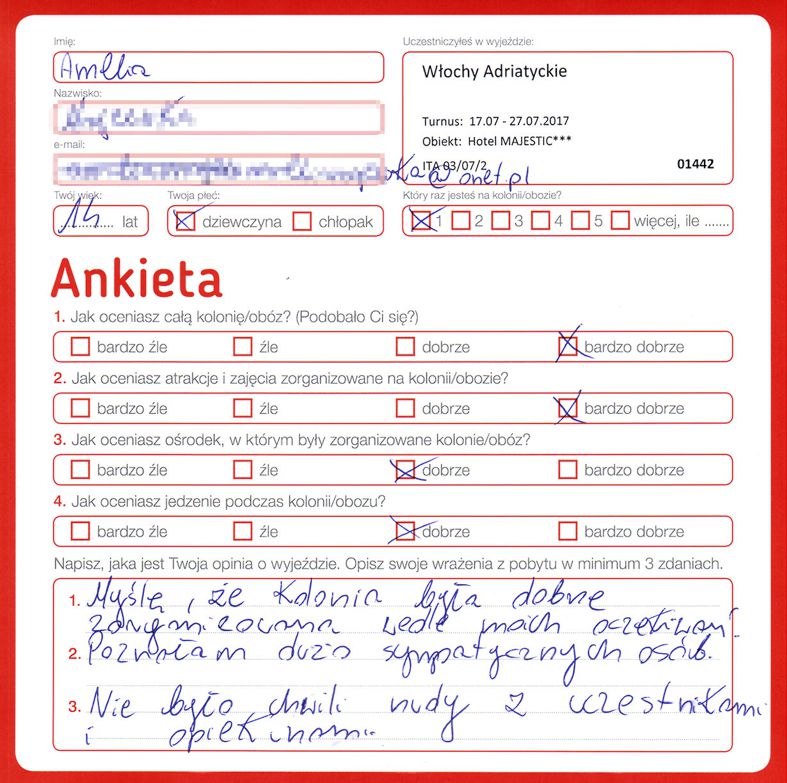 Imię:
Amelia
Nazwisko:
e-mail:
@onet.pl
Uczestniczyłeś w wyjeździe:
Włochy Adriatyckie
Turnus: 17.07 - 27.07.2017
Obiekt: Hotel MAJESTIC***
ITA 03/07/2
01442
Twój wiek:
14 lat
Twoja płeć:
dziewczyna chłopak
Który raz jesteś na kolonii/obozie?
1 2 3 4 5 więcej, ile .......
Ankieta
1. Jak oceniasz całą kolonię/obóz? (Podobało Ci się?)
bardzo źle źle dobrze bardzo dobrze
2. Jak oceniasz atrakcje i zajęcia zorganizowane na kolonii/obozie?
bardzo źle źle dobrze bardzo dobrze
3. Jak oceniasz ośrodek, w którym były zorganizowane kolonie/obóz?
bardzo źle źle dobrze bardzo dobrze
4. Jak oceniasz jedzenie podczas kolonii/obozu?
bardzo źle źle dobrze bardzo dobrze
Napisz, jaka jest Twoja opinia o wyjeździe. Opisz swoje wrażenia z pobytu w minimum 3 zdaniach.
1. Myślę, że kolonia była dobrze
zorganizowana wedle moich oczekiwań.
2. Poznałam dużo sympatycznych osób.
3. Nie było chwili nudy z uczestnikami
i opiekunami.